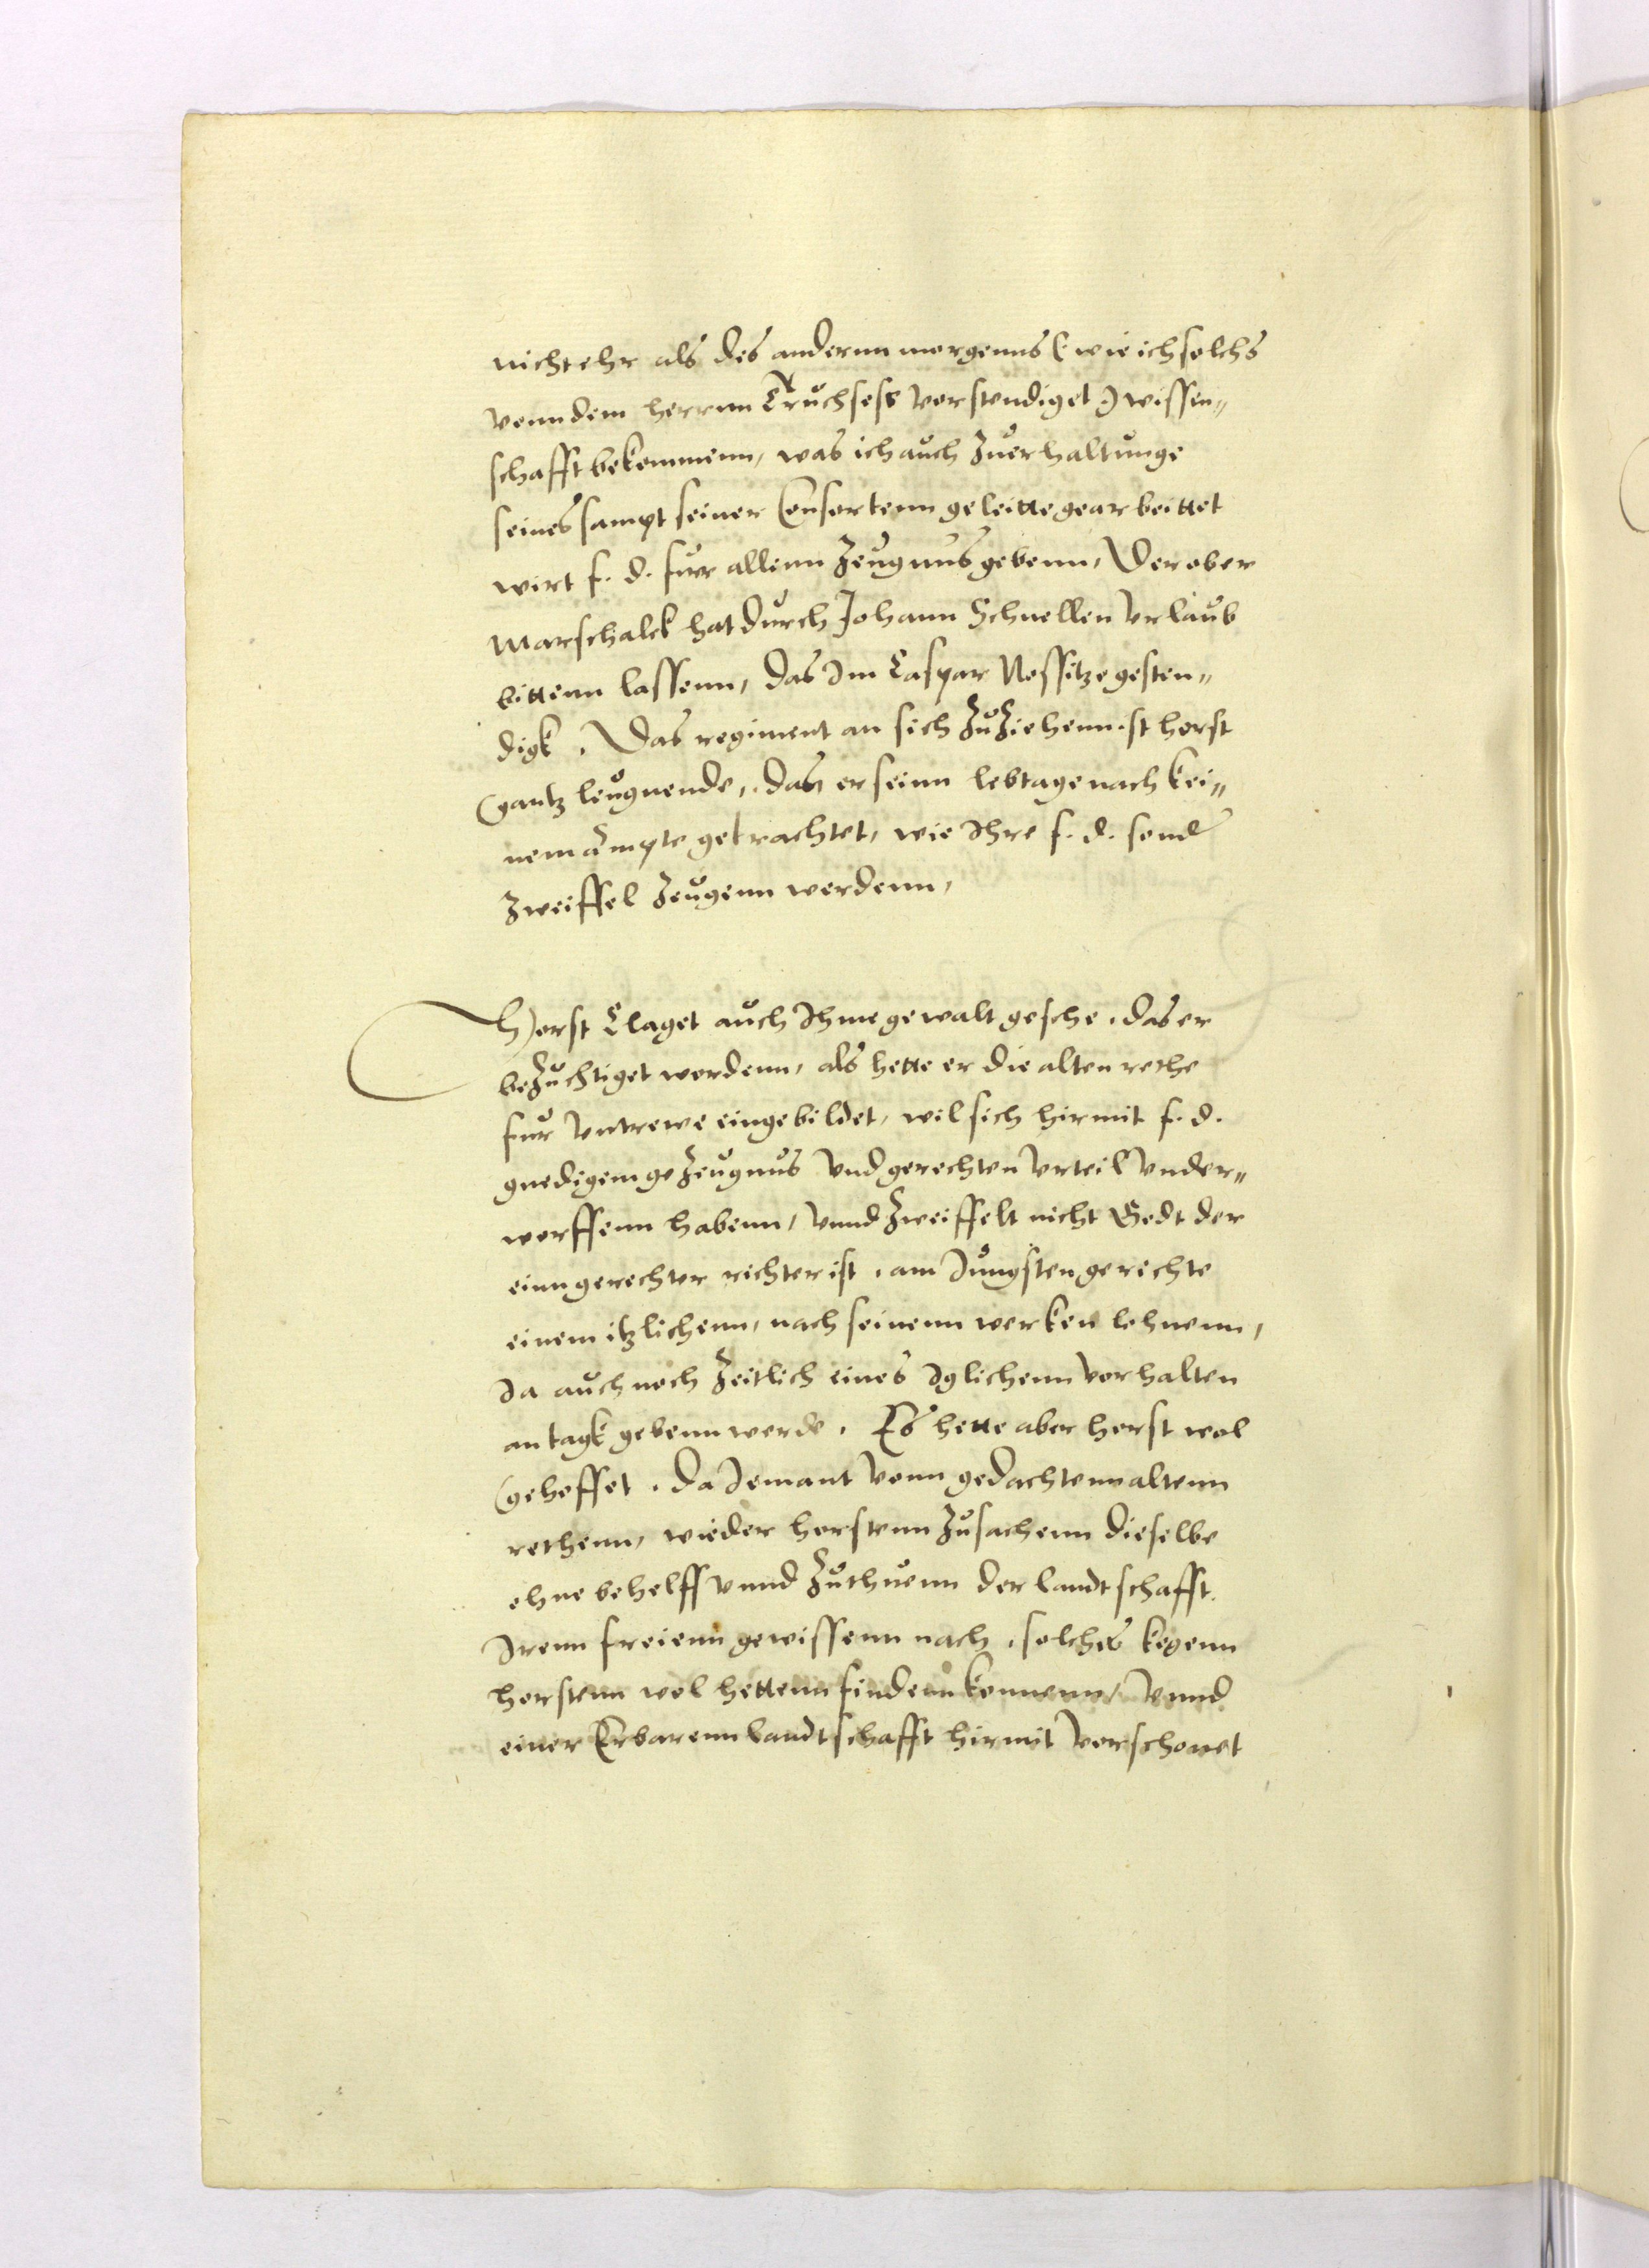 nicht ehr als des andernn morgenns (: wie ich solchs
vonn dem herrnn Truchses vorstendiget :) wissen¬
schafft bekommenn, was ich auch zu erhaltunge
seines sampt seiner Consortenn geleitte gearbeittet
wirt f. d. furr allenn zeugnus gebenn, Der ober
Marschalck hat durch Johann Schnellen vrlaub
bittenn lassenn, das Im Caspar Nossitze gesten¬
digk. Das regiment an sich zu ziehenn ist horst
gantz leugnende, das er seinn lebtage nach kei¬
nem ampte getrachtet, wie Ihre f. d. sond
zweiffel zeugenn werdenn,
Horst Claget auch Ihme gewalt geschehe, das er
bezuchtiget wordenn, als hette er die alten rethe
fur vntrewe eingebildet, wil sich hirmit f. d.
gnedigem gezeugnus vnd gerechten vrteil vnder¬
worffenn habenn, vnnd zweiffelt nicht Godt der
einn gerechter richter ist, am Jungsten gerichte
einem itzlichenn, nach seinenn werken lohnenn,
Ja auch noch zeitlich eines Iglichenn vorhalten
an tagk gebenn werde. Es hette aber horst wol
gehoffet, da Jemant vonn gedachtenn altenn
rethenn, wieder horstenn zusachenn dieselbe
ohne behelff vnnd zuthuenn der landtschafft.
Irenn freienn gewissenn nach, solches kegenn
horstenn wol hettenn findenn konnenn, vnnd
einer Erbarenn landtschafft hirmit vorschonet